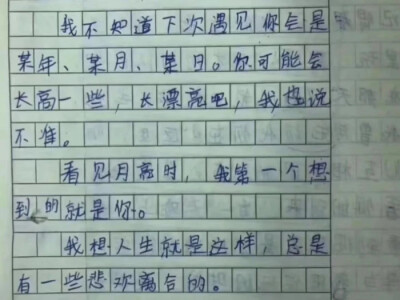 我不知道下次遇见你会是
某年、某月、某日。你可能会
长高一些，长漂亮吧，我也说
不准。
看见月亮时，我第一个想
到的就是你。
我想人生就是这样，总是
有一些悲欢离合的。